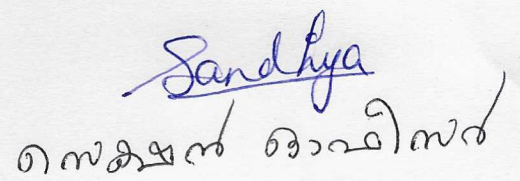 Sandhya
സെക്ഷൻ ഓഫീസർ